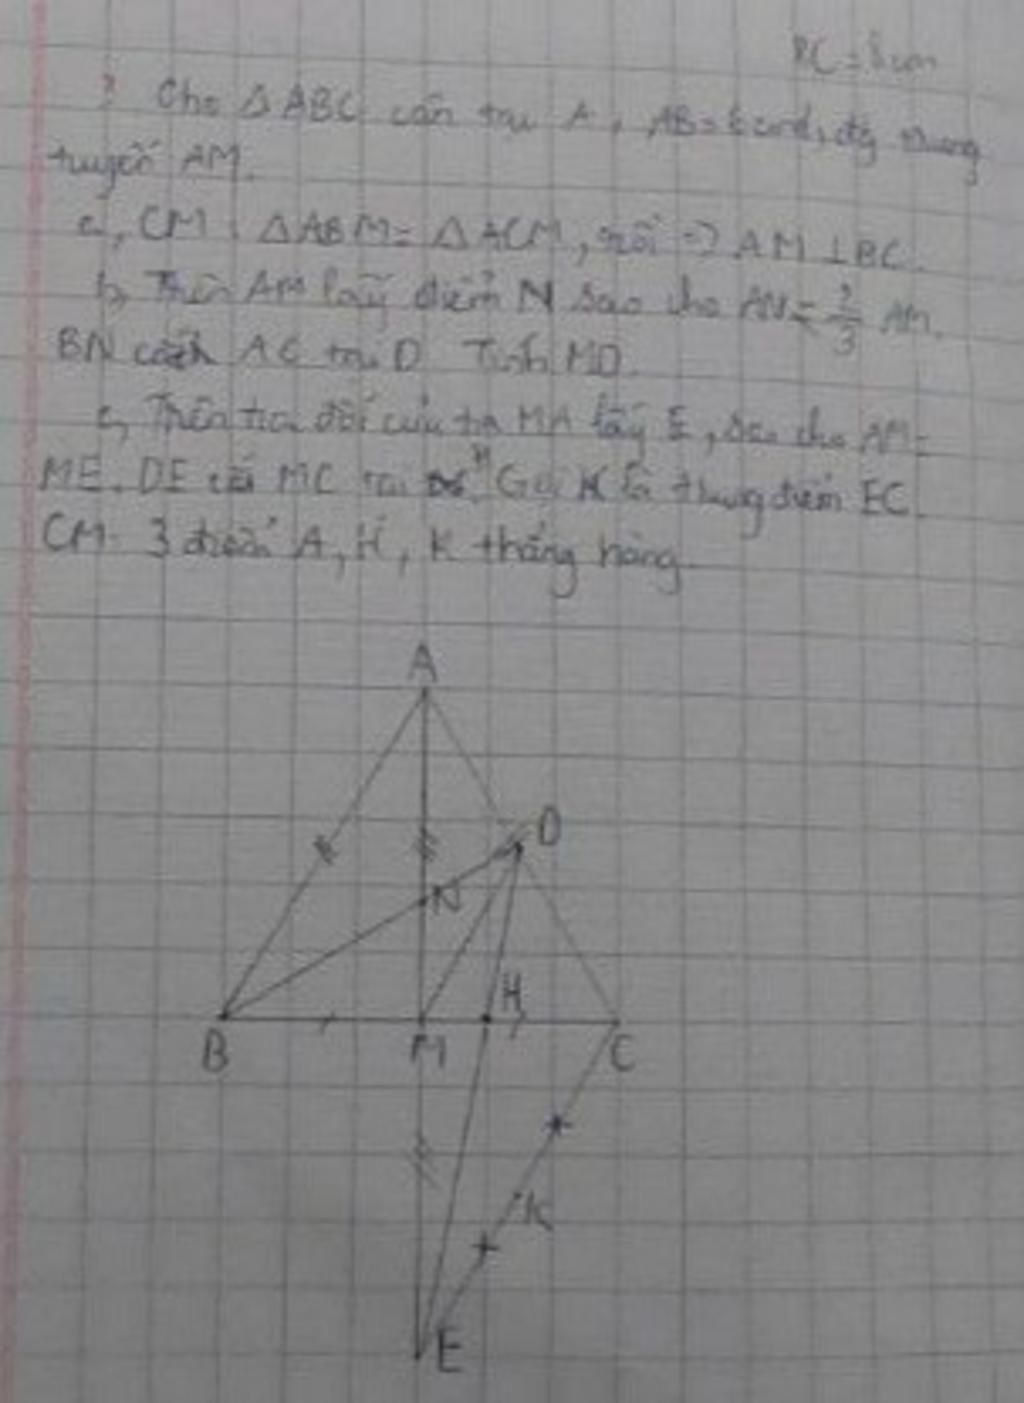 BC = 8cm
? Cho △ABC cân tại A, AB = cm, đg trung
tuyến AM.
a, CM : △ABM = △ACM, rồi => AM ⊥ BC.
b, Trên AM lấy điểm N sao cho AN = 2/3 AM.
BN cắt AC tại D Tính MD.
c, Trên tia đối của tia MA lấy E, sao cho AM =
ME. DE cắt MC tại H Gọi K là trung điểm EC.
CM 3 điểm A, H, K thẳng hàng.
A
D
N
H
B M C
K
E